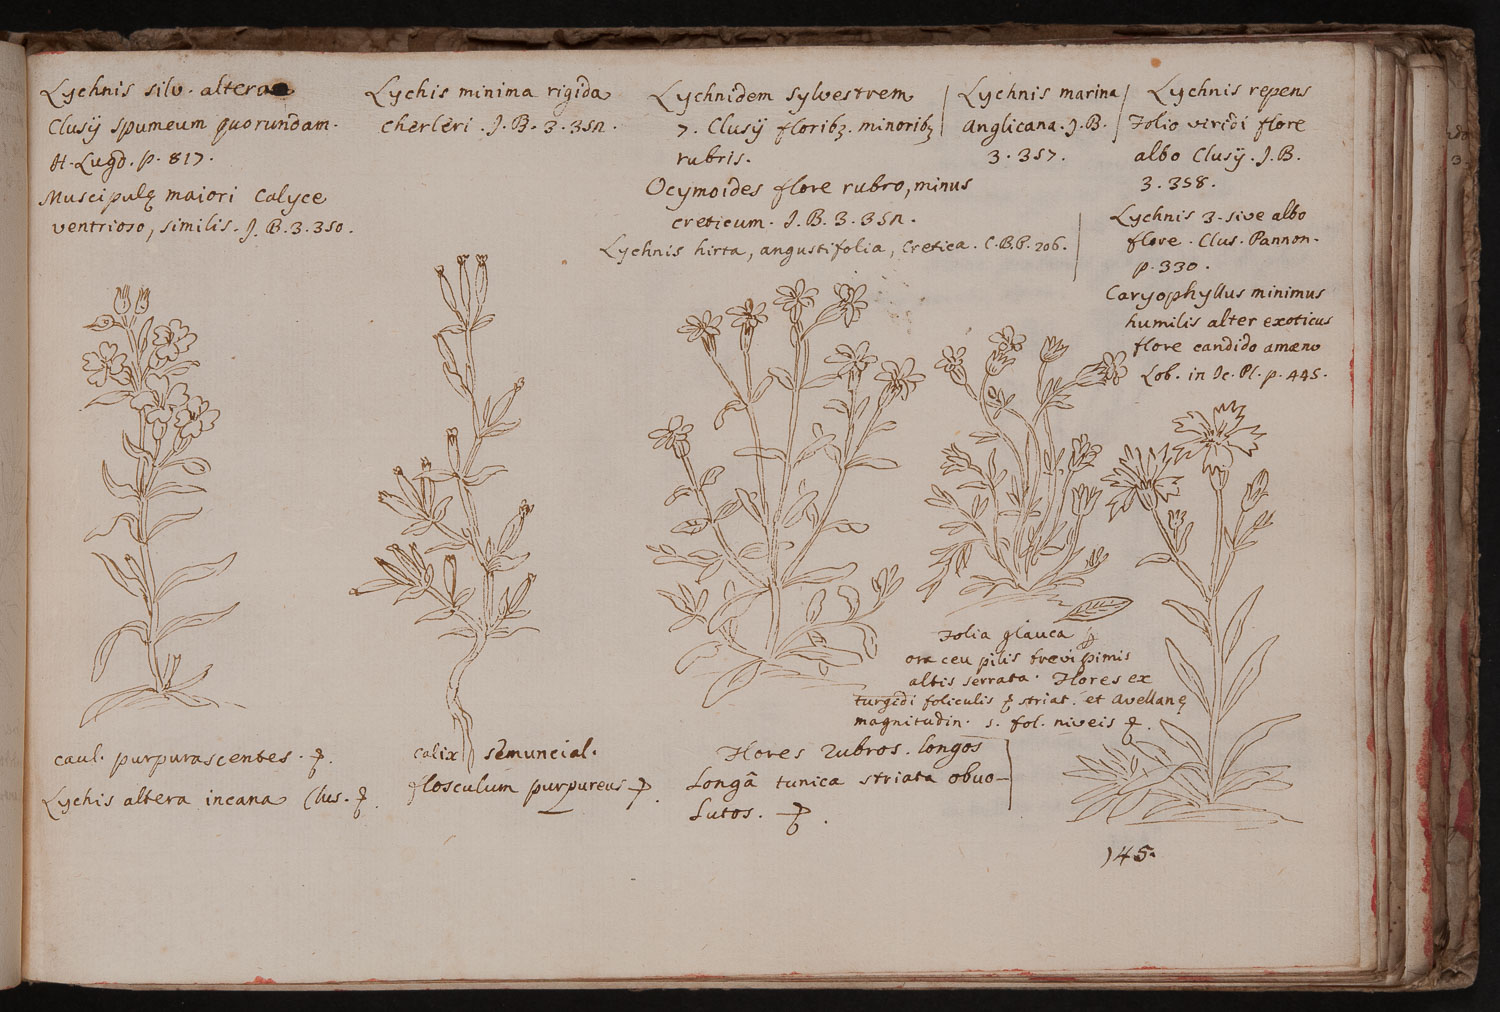 Lychnis silv. altera
Clusÿ spumeum quorundam.
H. Lugd. p. 817.
Muscipulę maiori Calyce
ventrioso, similis. J. B. 3. 350.
Lychis minima rigida
cherleri. J. B. 3. 352.
Lychnidem sylvestrem
7. Clusÿ floribꝫ minoribꝫ
rubris.
Ocymoides flore rubro, minus
creticum. J. B. 3. 352.
Lychnis hirta, angustifolia, Cretica. C. B. P. 206.
Lychnis marina
Anglicana. J. B.
3. 357.
Lychnis repens
Folio viridi flore
albo Clusÿ. J. B.
3. 358.
Lychnis 3. sive albo
flore. Clus. Pannon.
p. 330.
Caryophyllus minimus
humilis alter exoticus
flore candido amæno
Lob. in Ic. Pl. p. 445.
Folia glauca
ora ceu pilis brevißimis
albis serrata. Flores ex
turgidi foliculis striat. et Avellanę
magnitudin. s. fol. niveis
caul. purpurascentes.
Lychis altera incana Clus.
calix semuncial.
flosculum purpureus
Flores rubros. longos
Longâ tunica striata obuo-
lutos.
145.